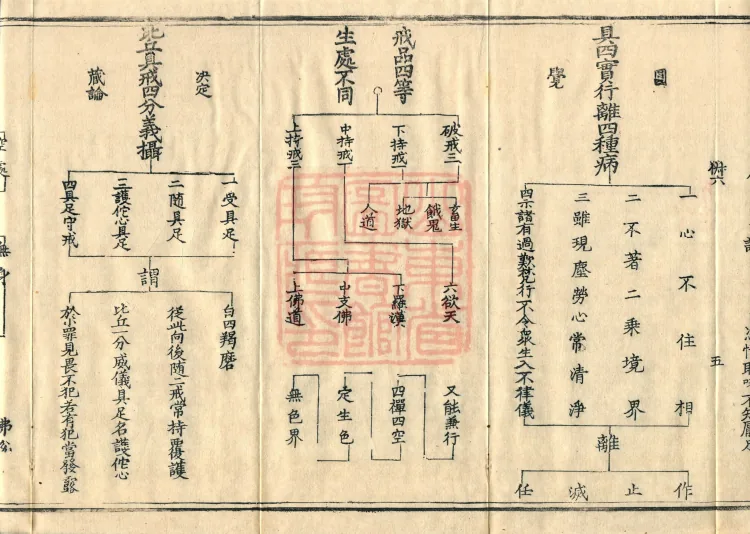 具四實行離四種病
圓
覺
一心不住相
二不著二乘境界
三雖現塵勞心常清淨
離
作
止
滅
任
五
戒品四等
生處不同
破戒三
下持戒一
中持戒一
上持戒三
畜生
餓鬼
地獄
人道
六欲天
下羅漢
中支佛
上佛道
又能兼行
四禪四空
定生色
無色界
比丘具戒四分義攝
決定
藏論
一受具足
二隨具足
三護佗心具足
四具足守戒
謂
白四羯磨
從此向後隨二戒常持覆護
比丘一分威儀具足名護佗心
於小罪見畏不犯若有犯當發露